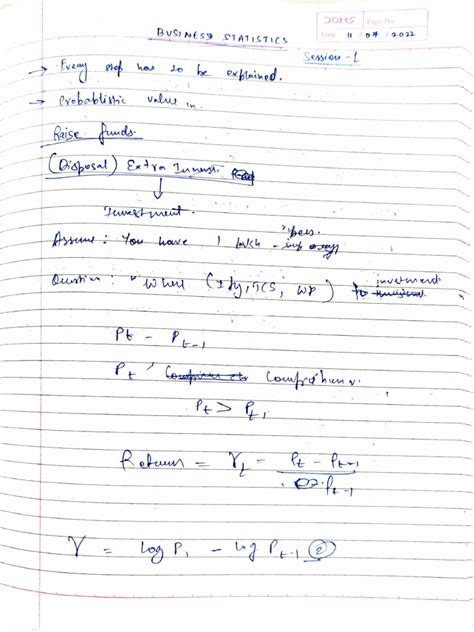 DOMS Page No.
Date 11 / 07 / 2022
BUSINESS STATISTICS
Session - 1
→ Every step has to be explained.
→ Probablistic value in.
Raise funds.
(Disposal) Extra
↓
Investment.
Assume: You have 1 lakh
Question: Where (Ify, TCS, WP) investment
Pt - Pt-1
Pt
Pt > Pt1
Return = rt = Pt - Pt-1 / Pt-1
r = log P1 - log Pt-1 ②